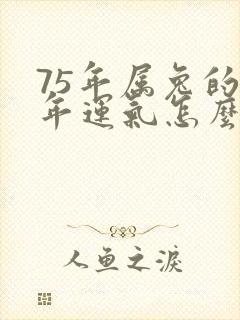 75年属兔的
年運氣怎麼
人鱼之淚